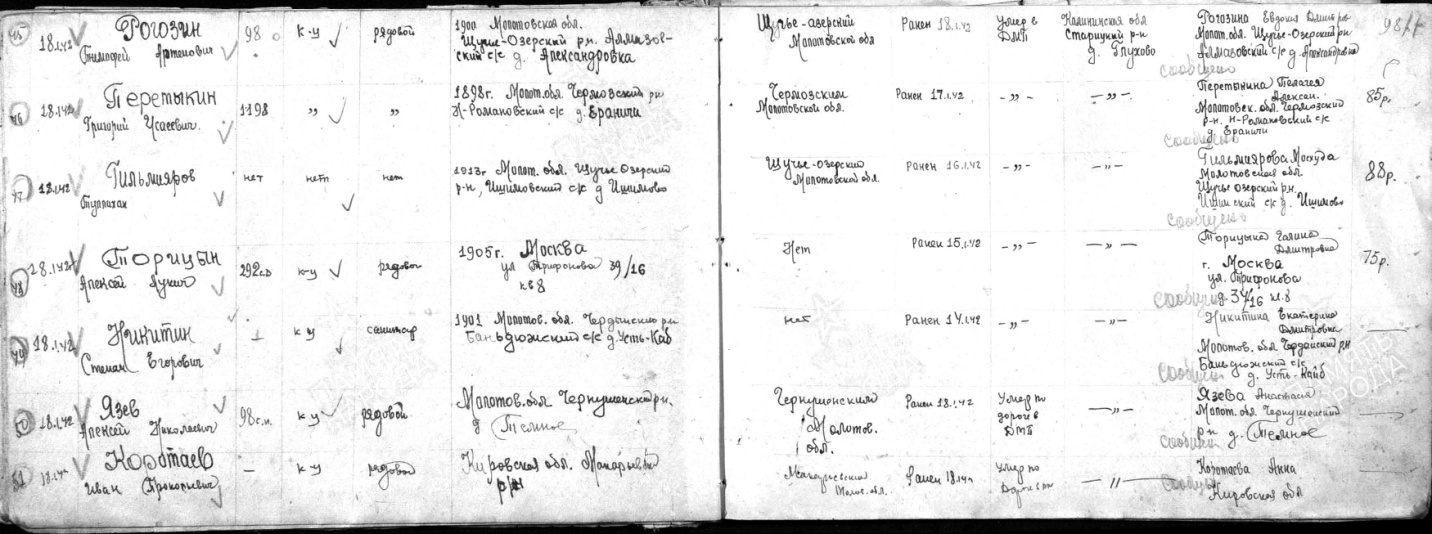 45 18.1.42 Рогозин
Тимофей Артемович
98
к-у
рядовой
1900 Молотовская обл.
Щучье-Озерский рн. Алмазов-
ский с/с д. Александровка
Щучье-азерский
Молотовской обл
Ранен 18.1.42
Умер в
ДМП
Калининская обл
Старицкий р-н
д. Глухово
Рогозина Евдокия Дмитр
Молот. обл. Щучье-Озерский рн
Алмазовский с/с д. Александровка
сообщено
98
46 18.1.42 Перетыкин
Григорий Исаевич
1198
"
"
1898г. Молот. обл. Чермозский рн
Н-Романовский с/с д. Ераничи
Чермозским
Молотовской обл.
Ранен 17.1.42
- „ -
- „ -
Перетынина Пелагея
Алексан.
Молотовск. обл. Чермозский
р-н. Н-Романовский с/с
д. Ераничи
сообщено
85р.
47 18.1.42 Гильмияров
нет
нет
нет
1913г Молот. обл. Щучье Озерский
р-н, Ишимовский с/с д Ишимово
Щучье-Озерский
Молотовской обл.
Ранен 16.1.42
- „ -
- „ -
Гильмиярова
Молотовская обл
Щучье Озерский рн.
с/с д. Ишимово
сообщено
88р.
48 18.1.42 Торицын
Алексей Лукич
292с.д
к-у
рядовой
1905г. Москва
ул Трифонова 39/16
кв 8
Нет
Ранен 15.1.42
- „ -
- „ -
Торицына Галина
Дмитровна
г. Москва
ул. Трифонова
кв. 8
сообщено
75р.
49 18.1.42 Никитин
Степан Егорович
к у
санитар
1901 Молотов. обл. Чердынский рн
Баньдюжский с/с д. Усть-Каб
нет
Ранен 14.1.42
- „ -
- „ -
Никитина Екатерина
Дмитровна
Молотов. обл Чердынский рн
Баньдюжский с/с
д. Усть-Кайб
сообщено
50 18.1.42 Язев
Алексей Николаевич
к у
рядовой
Молотов. обл Чернушенский рн.
д Темное
Чернушонским
Молотов.
обл.
Ранен 18.1.42
Умер по
дороге в
ДМП
- „ -
Язева Анастасия
Молот. обл Чернушенский
рн д. Темное
сообщено
51 18.1.42 Коротаев
Иван Прокопьевич
—
к у
рядовой
Кировская обл.
р/н
Ранен 18.1.42
Умер по
- „ -
Коротаева Анна
Кировская обл
ПАМЯТЬ
НАРОДА